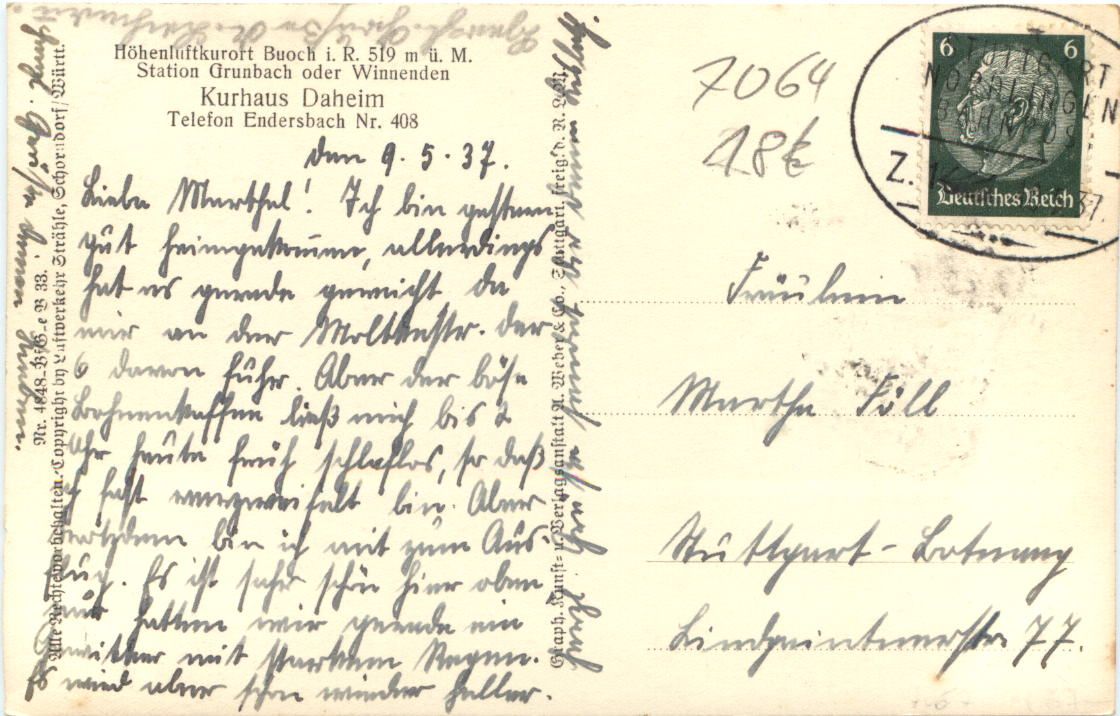 Höhenluftkurort Buoch i. R. 519 m ü. M.
Station Grunbach oder Winnenden
Kurhaus Daheim
Telefon Endersbach Nr. 408
den 9.5.37.
Liebe Marthel! Ich bin gestern
gut heimgekommen, allerdings
hat es gerade gereicht da
mir an der Moltkestr. der
6 davon fuhr. Aber der böse
Bohnenkaffee ließ mich bis 2
Uhr heute früh schlaflos, so daß
ich fast verzweifelt bin. Aber
trotzdem bin ich mit zum Aus-
flug. Es ist sehr schön hier oben
nur hatten wir gerade ein
Gewitter mit starkem Regen.
Es wird aber schon wieder heller.
Nr. 4848-BfG-e B 33.
Alle Rechte vorbehalten. Copyright by Luftverkehr Strähle, Schorndorf/Württ.
Graph. Kunst- u. Verlagsanstalt A. Weber & Co., Stuttgart, freig. d. R.L.M.
7064
18€
6 6
Deutsches Reich
STUTTGART
NÖRDLINGEN
BAHNPOST
Z.
37.
Fräulein
Martha Föll
Stuttgart-Botnang
Lindpaintnerstr. 77.